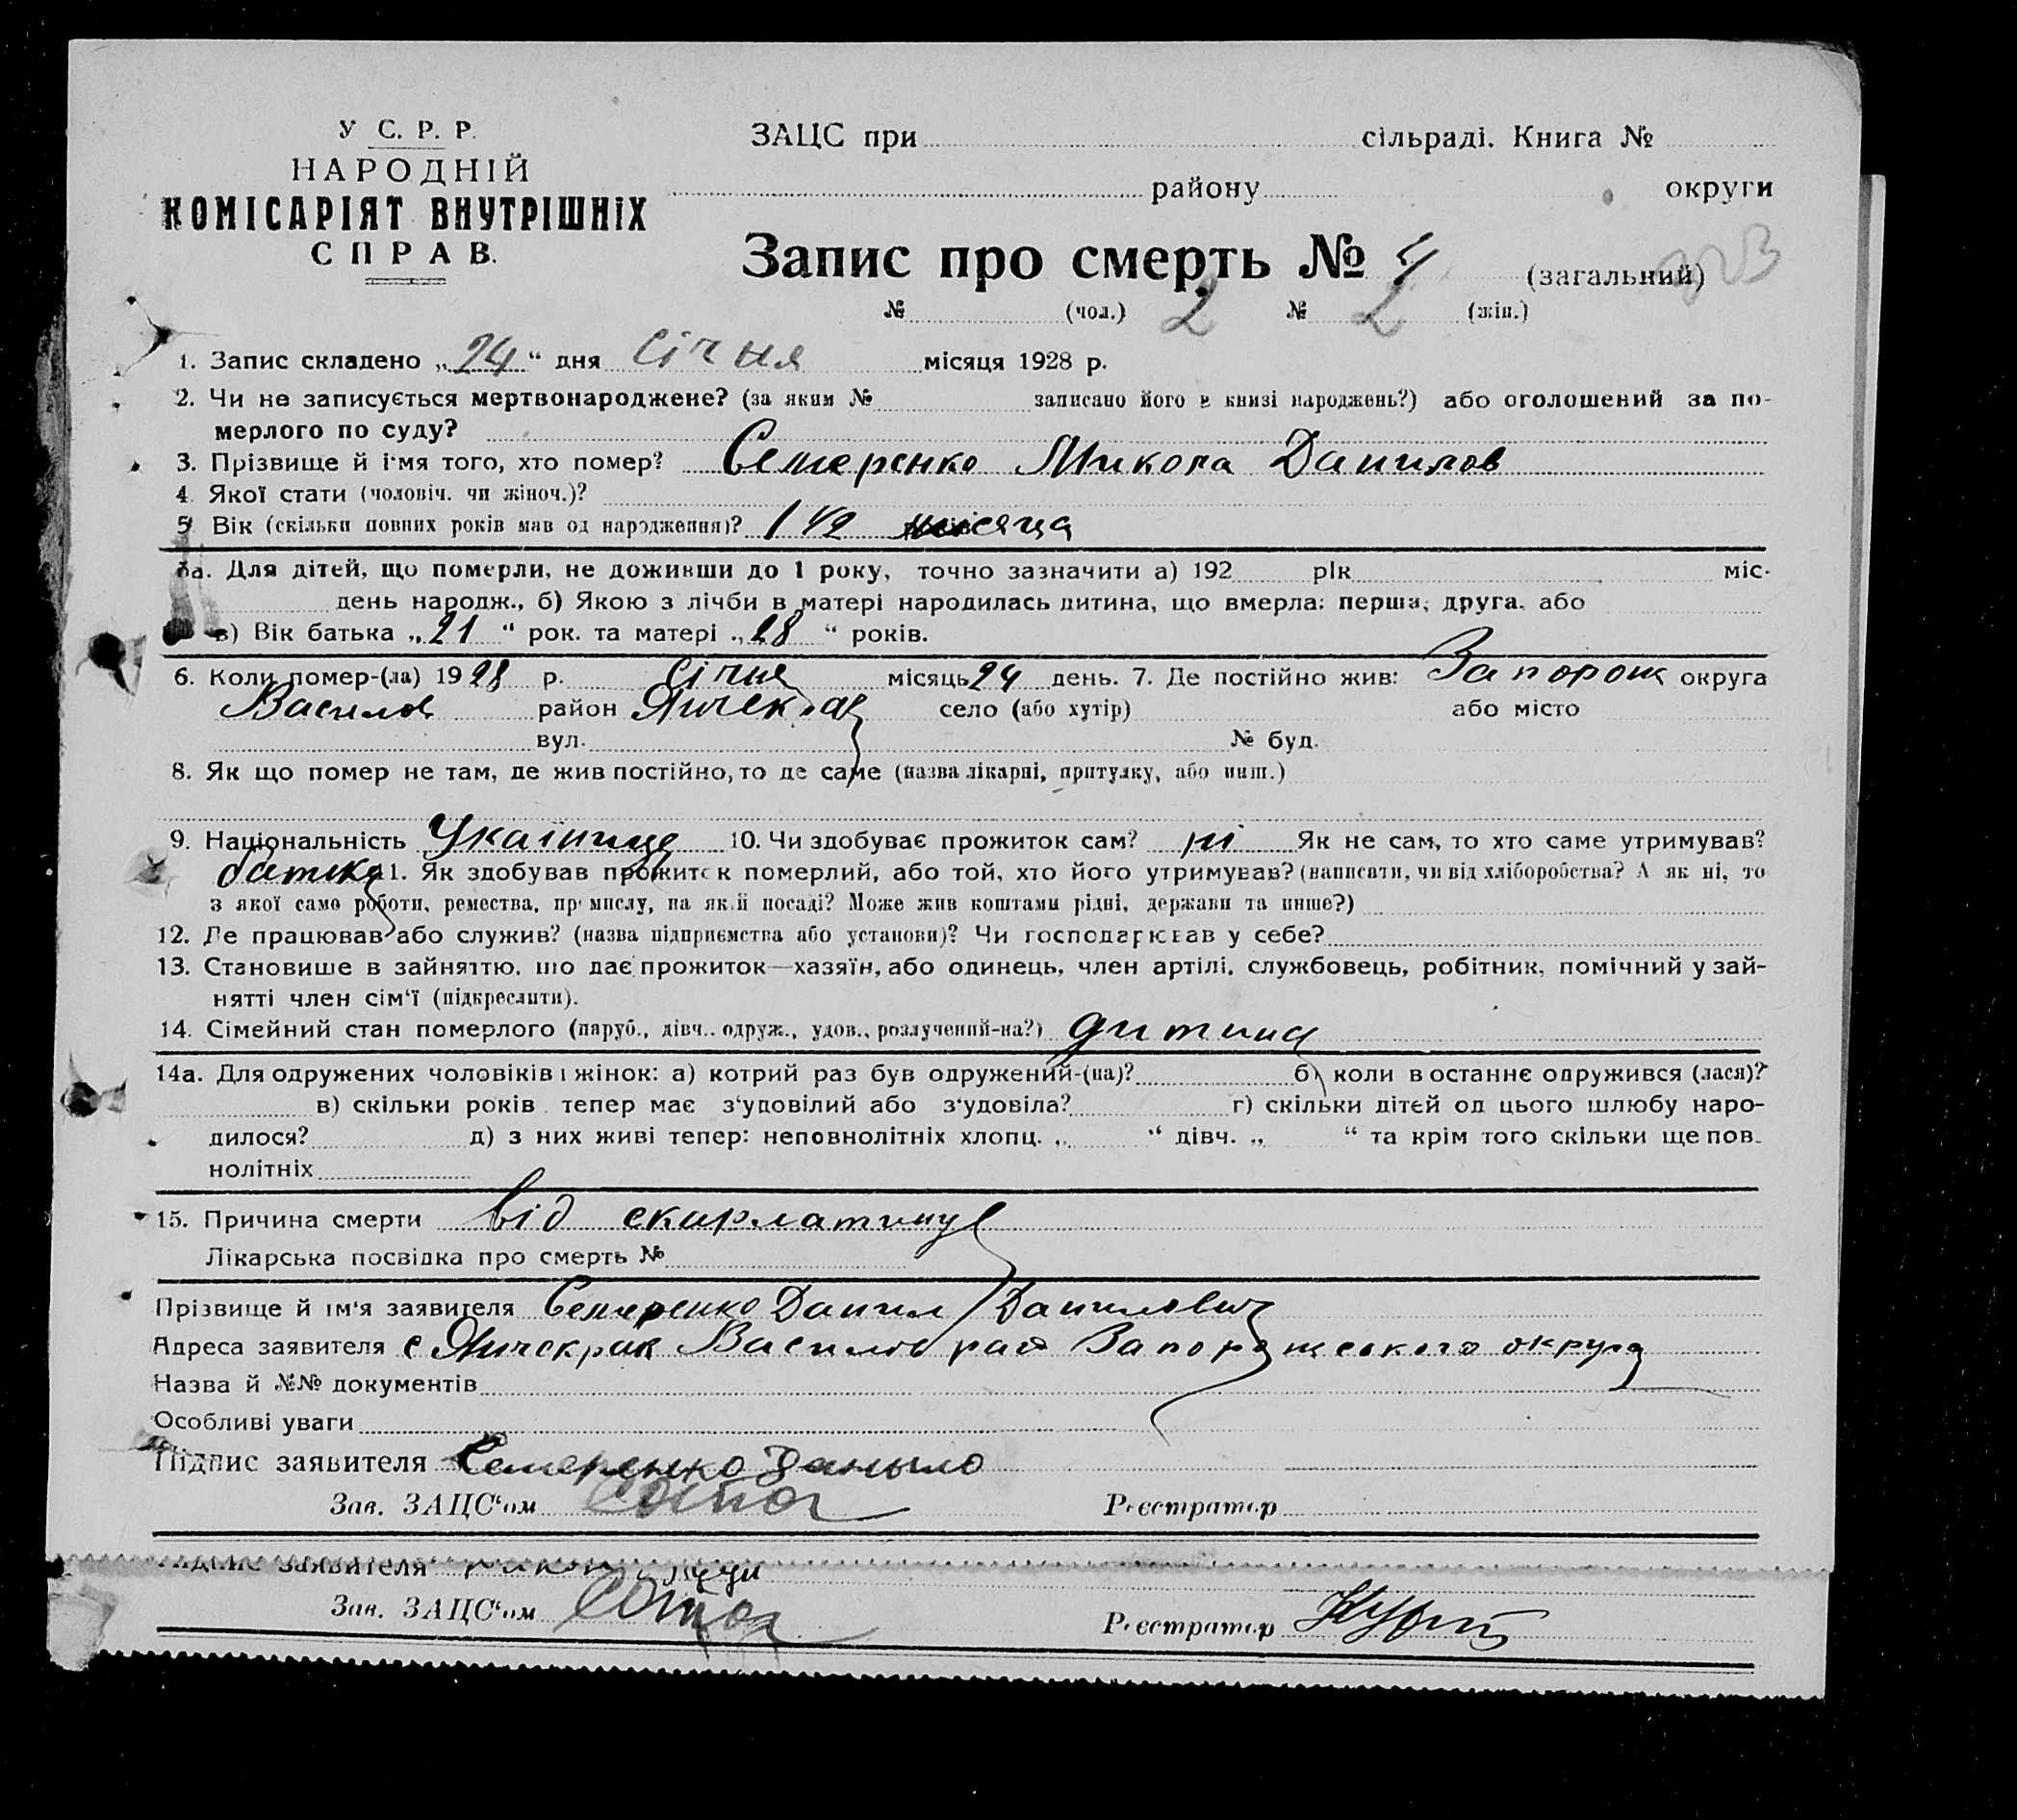 У С. Р. Р.
НАРОДНІЙ
КОМІСАРІЯТ ВНУТРІШНІХ
СПРАВ.
ЗАЦС при сільраді. Книга №
району округи
Запис про смерть № 4 (загальний)
№ (чол.) 2 № 2 (жін.)
1. Запис складено „24“ дня Січня місяця 1928 р.
2. Чи не записується мертвонароджене? (за яким № записано його в книзі народжень?) або оголошений за по-
мерлого по суду?
3. Прізвище й ім'я того, хто помер? Семеренко Микола Данилов
4. Якої стати (чоловіч. чи жіноч.)?
5 Вік (скільки повних років мав од народження)? 1 1/2 місяца
5а. Для дітей, що померли, не доживши до 1 року, точно зазначити а) 192 рік міс.
день народж., б) Якою з лічби в матері народилась дитина, що вмерла: перша, друга, або
в) Вік батька „21“ рок. та матері „28“ років.
6. Коли помер-(ла) 1928 р. Січня місяць 24 день. 7. Де постійно жив: Запорож округа
Василов район Янчекрак село (або хутір) або місто
вул. № буд.
8. Як що помер не там, де жив постійно, то де саме (назва лікарні, притулку, або инш.)
9. Національність Укаїнице 10. Чи здобуває прожиток сам? ні Як не сам, то хто саме утримував?
батько 11. Як здобував прожиток померлий, або той, хто його утримував? (написати, чи від хліборобства? А як ні, то
з якої само роботи, ремества, промислу, на якій посаді? Може жив коштами рідні, держави та инше?)
12. Де працював або служив? (назва підприємства або установи)? Чи господарював у себе?
13. Становище в зайняттю, що дає прожиток—хазяїн, або одинець, член артілі, службовець, робітник, помічний у зай-
нятті член сім'ї (підкреслити).
14. Сімейний стан померлого (паруб., дівч., одруж., удов., розлучений-на?) дитина
14а. Для одружених чоловіків і жінок: а) котрий раз був одружений-(на)? б) коли востаннє одружився (лася)?
в) скільки років тепер має з'удовілий або з'удовіла? г) скільки дітей од цього шлюбу наро-
дилося? д) з них живі тепер: неповнолітніх хлопц. „ “ дівч. „ “ та крім того скільки ще пов-
нолітніх
15. Причина смерти від скарлатину
Лікарська посвідка про смерть №
Прізвище й ім'я заявителя Семеренко Данил Данилович
Адреса заявителя с Янчокрак Василів рай Запоріжського округа
Назва й №№ документів
Особливі уваги
Підпис заявителя Семеренко Даныло
Зав. ЗАЦС'ом Реєстратор
Підпис заявителя
Зав. ЗАЦС'ом Реєстратор